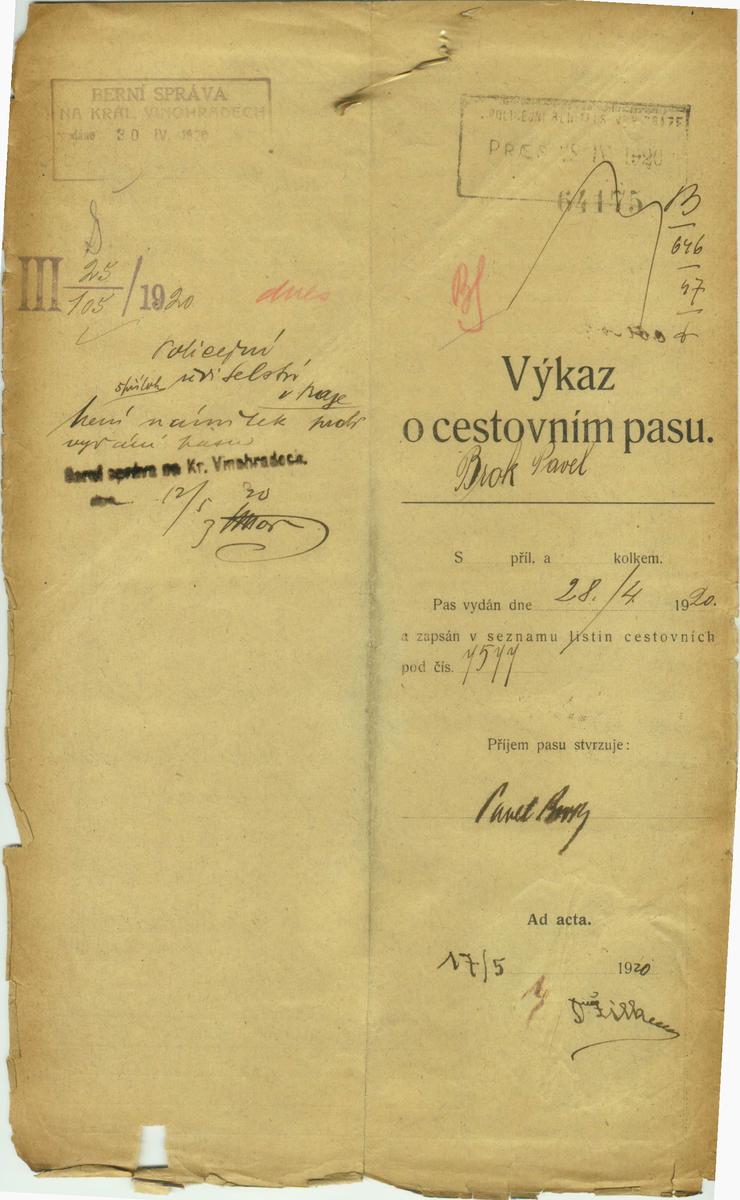 BERNÍ SPRÁVA
NA KRÁL. VINOHRADECH
30 IV. 1920
III 25/105 / 1920
dnes
Policejní
ředitelství
v Praze
není námitek proti
vydání pasu
Berní správa na Kr. Vinohradech.
dne 12/5 20
PRÆS 29 IV 1920
64175
B
646
47
Výkaz
o cestovním pasu.
Brok Pavel
S příl. a kolkem.
Pas vydán dne 28./4 1920.
a zapsán v seznamu listin cestovních
pod čís. 7577
Příjem pasu stvrzuje:
Pavel Brok
Ad acta.
17/5 1920